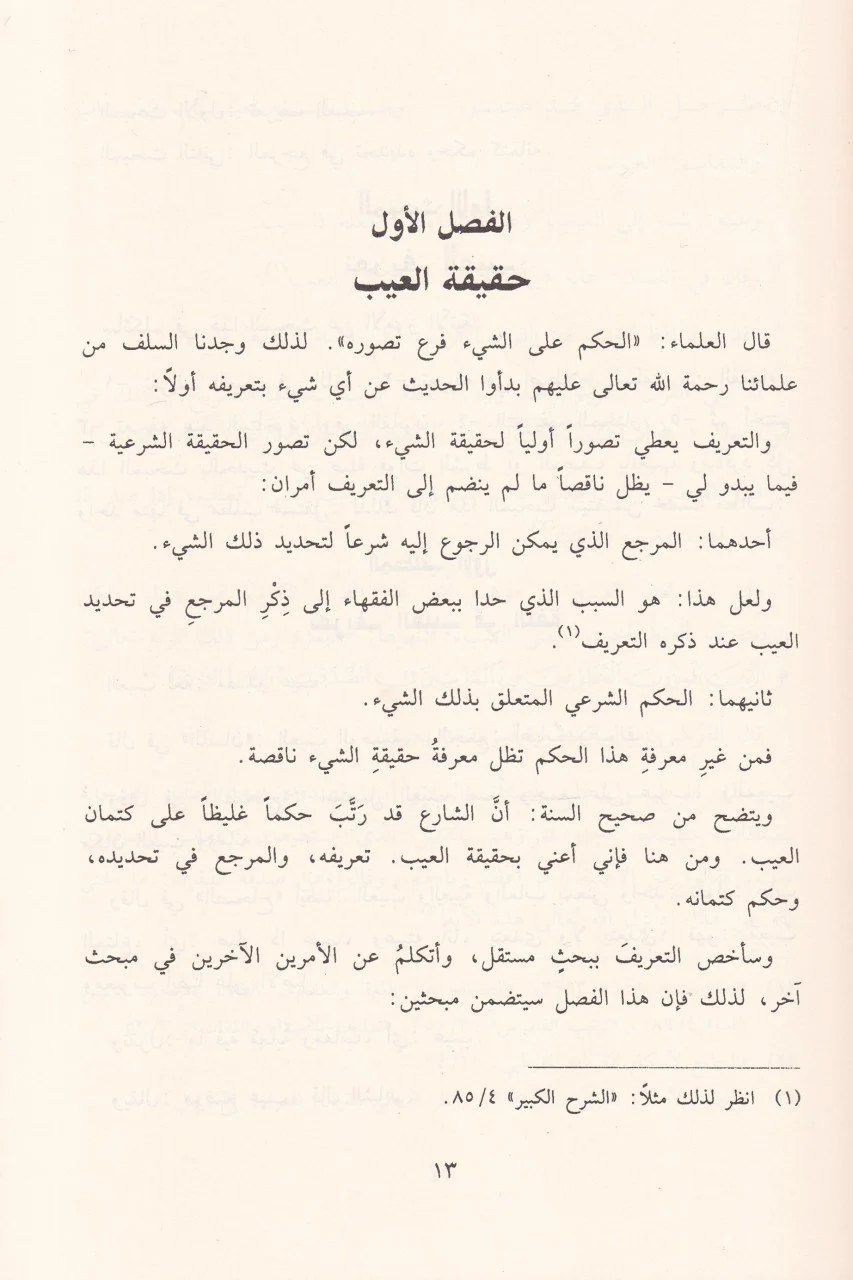 الفصل الأول
حقيقة العيب
قال العلماء: «الحكم على الشيء فرع تصوره». لذلك وجدنا السلف من
علمائنا رحمة الله تعالى عليهم بدأوا الحديث عن أي شيء بتعريفه أولاً:
والتعريف يعطي تصوراً أولياً لحقيقة الشيء، لكن تصور الحقيقة الشرعية -
فيما يبدو لي - يظل ناقصاً ما لم ينضم إلى التعريف أمران:
أحدهما: المرجع الذي يمكن الرجوع إليه شرعاً لتحديد ذلك الشيء.
ولعل هذا: هو السبب الذي حدا ببعض الفقهاء إلى ذِكْرِ المرجعِ في تحديد
العيب عند ذكره التعريف(١).
ثانيهما: الحكم الشرعي المتعلق بذلك الشيء.
فمن غيرِ معرفةِ هذا الحكم تظل معرفةُ حقيقةِ الشيء ناقصة.
ويتضح من صحيح السنة: أنَّ الشارع قد رَتَّبَ حكماً غليظاً على كتمان
العيب. ومن هنا فإني أعني بحقيقة العيب. تعريفه، والمرجع في تحديده،
وحكم كتمانه.
وسأخص التعريفَ ببحثٍ مستقل، وأتكلمُ عن الأمرين الآخرين في مبحث
آخر، لذلك فإن هذا الفصل سيتضمن مبحثين:
(١) انظر لذلك مثلاً: «الشرح الكبير» ٨٥/٤.
١٣